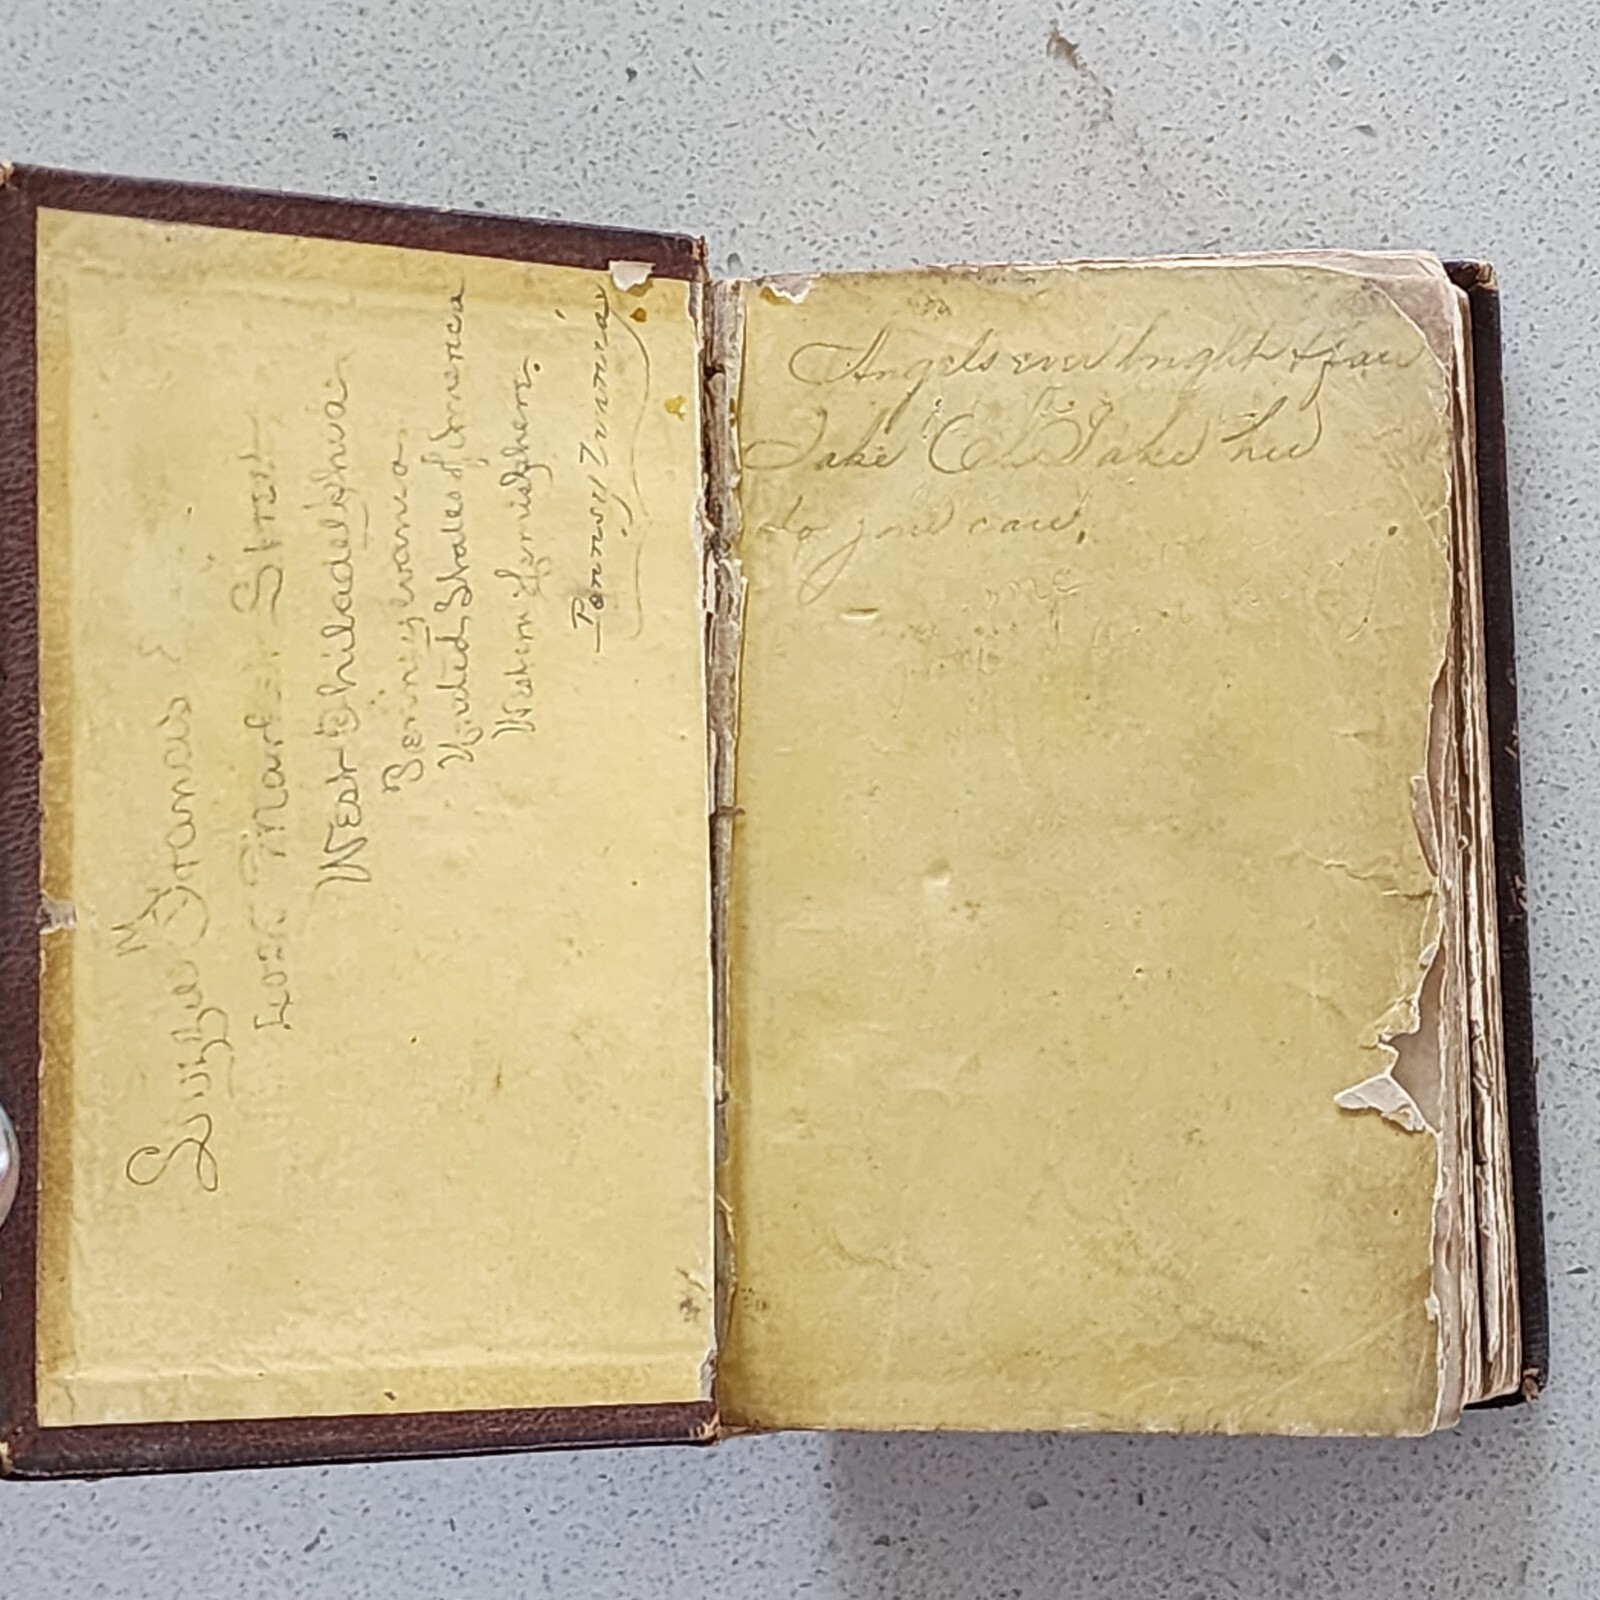 M
Francis
Market Street
West Philadelphia
Pennsylvania
United States of America
Western Hemisphere.
Angels ever bright & fair
Take Oh Take her
to your care.